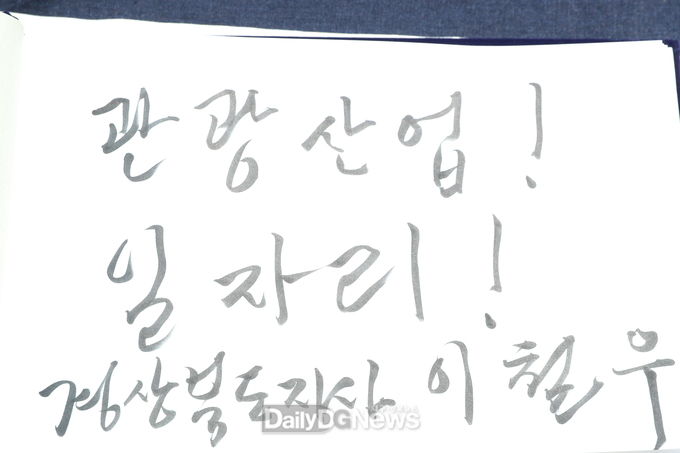 관광산업!
일자리!
경상북도지사 이철우
DailyDGNews